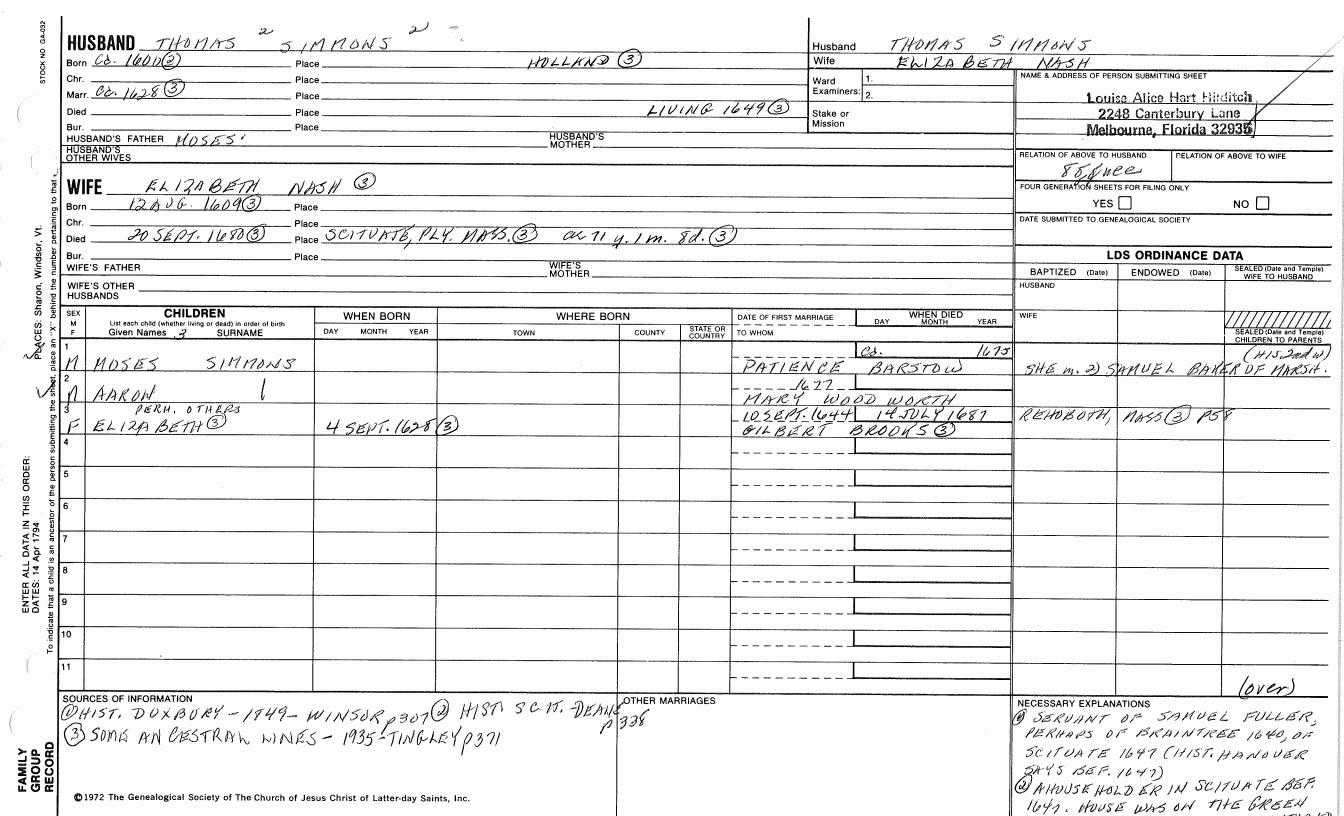 STOCK NO. GA-032
HUSBAND THOMAS 2 SIMMONS 2
Born Ca. 1600 ② Place HOLLAND ③
Chr. Place
Marr. Ca. 1628 ③ Place
Died Place LIVING 1649 ③
Bur. Place
HUSBAND'S FATHER MOSES' HUSBAND'S MOTHER
HUSBAND'S OTHER WIVES
Husband THOMAS SIMMONS
Wife ELIZABETH NASH
Ward Examiners: 1.
2.
Stake or Mission
NAME & ADDRESS OF PERSON SUBMITTING SHEET
Louise Alice Hart Hilditch
2248 Canterbury Lane
Melbourne, Florida 32935
RELATION OF ABOVE TO HUSBAND RELATION OF ABOVE TO WIFE
FOUR GENERATION SHEETS FOR FILING ONLY
YES NO
DATE SUBMITTED TO GENEALOGICAL SOCIETY
WIFE ELIZABETH NASH ③
Born 12 AUG. 1609 ③ Place
Chr. Place
Died 20 SEPT. 1680 ③ Place SCITUATE, PLY. MASS. ③ ae 71 y. 1 m. 8d. ③
Bur. Place
WIFE'S FATHER WIFE'S MOTHER
WIFE'S OTHER HUSBANDS
LDS ORDINANCE DATA
BAPTIZED (Date) ENDOWED (Date) SEALED (Date and Temple) WIFE TO HUSBAND
HUSBAND
WIFE
SEALED (Date and Temple) CHILDREN TO PARENTS
SEX M F
CHILDREN
List each child (whether living or dead) in order of birth
Given Names 3 SURNAME
WHEN BORN
DAY MONTH YEAR
WHERE BORN
TOWN COUNTY STATE OR COUNTRY
DATE OF FIRST MARRIAGE
TO WHOM
WHEN DIED
DAY MONTH YEAR
1 Ca. 1675 (HIS 2nd W)
M MOSES SIMMONS PATIENCE BARSTOW SHE m. 2) SAMUEL BAKER OF MARSH.
2 1677
M AARON MARY WOODWORTH
3 PERH. OTHERS 10 SEPT. 1644 14 JULY 1687 REHOBOTH, MASS ③ P58
F ELIZABETH ③ 4 SEPT. 1628 ③ GILBERT BROOKS ③
4
5
6
7
8
9
10
11
(over)
SOURCES OF INFORMATION
① HIST. DUXBURY - 1849 - WINSOR p307 ② HIST. SCIT. - DEANE p 338
③ SOME ANCESTRAL LINES - 1935 - TINGLEY p371
OTHER MARRIAGES
NECESSARY EXPLANATIONS
① SERVANT OF SAMUEL FULLER,
PERHAPS OF BRAINTREE 1640, OF
SCITUATE 1647 (HIST. HANOVER
SAYS BEF. 1647)
② A HOUSEHOLDER IN SCITUATE BEF.
1647. HOUSE WAS ON THE GREEN
©1972 The Genealogical Society of The Church of Jesus Christ of Latter-day Saints, Inc.
FAMILY
GROUP
RECORD
ENTER ALL DATA IN THIS ORDER:
DATES: 14 Apr 1794
PLACES: Sharon, Windsor, Vt.
To indicate that a child is an ancestor of the person submitting the sheet, place an "X" behind the number pertaining to that